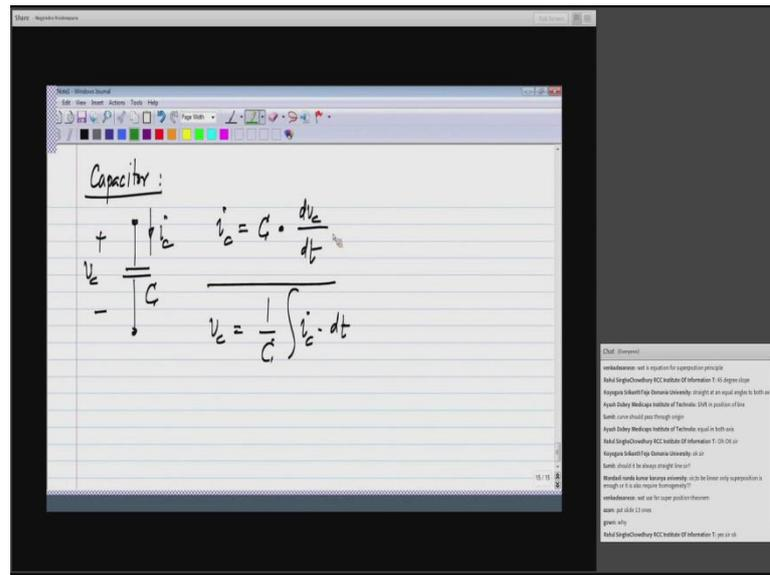 Share - Nagendra Krishnapura
Full Screen
Note1 - Windows Journal
Edit View Insert Actions Tools Help
Page Width
Capacitor :
+
v_c
-
i_c
C
i_c = C · dv_c/dt
v_c = 1/C ∫ i_c · dt
15 / 15
Chat (Everyone)
venkadasanese: wat is equation for superposition principle
Rahul SinghaChowdhury RCC Institute Of Information T: 45 degree slope
Koyugura SrikanthTeja Osmania University: straight at an equal angles to both axis
Ayush Dubey Medicaps Institute of Technolo: Shift in position of line
Sumit: curve should pass through origin
Ayush Dubey Medicaps Institute of Technolo: equal in both axis
Rahul SinghaChowdhury RCC Institute Of Information T: Oh OK sir
Koyugura SrikanthTeja Osmania University: ok sir
Sumit: should it be always straight line sir?
Mandadi nanda kumar karunya university: sir,to be linear only superposition is
enough or it is also require homogeneity??
venkadasanese: wat use for super position theorem
azam: put slide 13 ones
gowri: why
Rahul SinghaChowdhury RCC Institute Of Information T: yes sir ok